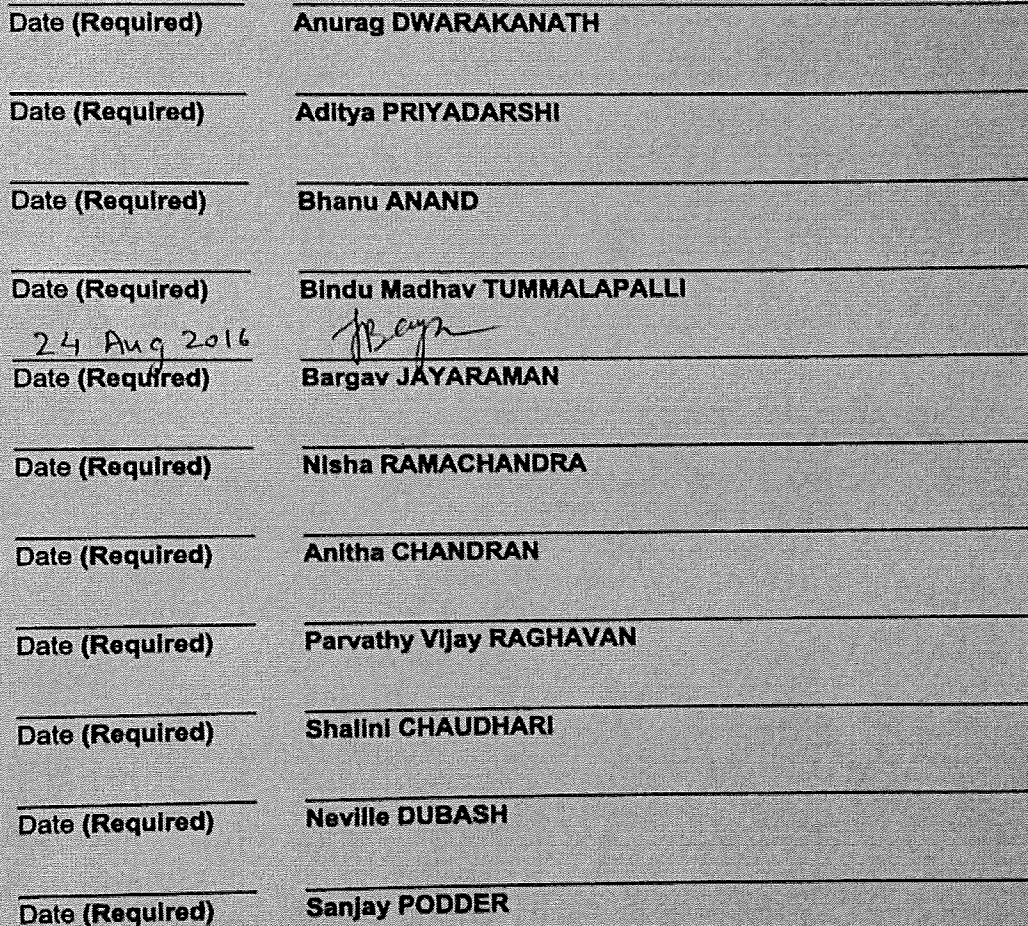 Date (Required) Anurag DWARAKANATH
Date (Required) Aditya PRIYADARSHI
Date (Required) Bhanu ANAND
Date (Required) Bindu Madhav TUMMALAPALLI
24 Aug 2016
Date (Required) Bargav JAYARAMAN
Date (Required) Nisha RAMACHANDRA
Date (Required) Anitha CHANDRAN
Date (Required) Parvathy Vijay RAGHAVAN
Date (Required) Shalini CHAUDHARI
Date (Required) Neville DUBASH
Date (Required) Sanjay PODDER